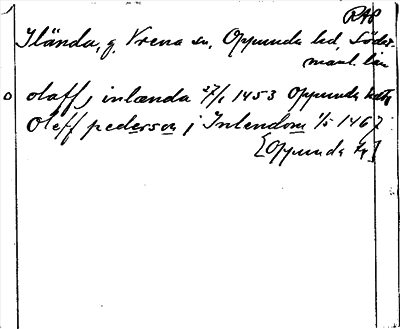 RAP
Ilända, g. Vrena sn, Oppunda hd, Söder-
manl. län
olaff j inlænda 27/1 1453 Oppunda
Oleff pederson j Inlendom 1/5 1467
[Oppunda